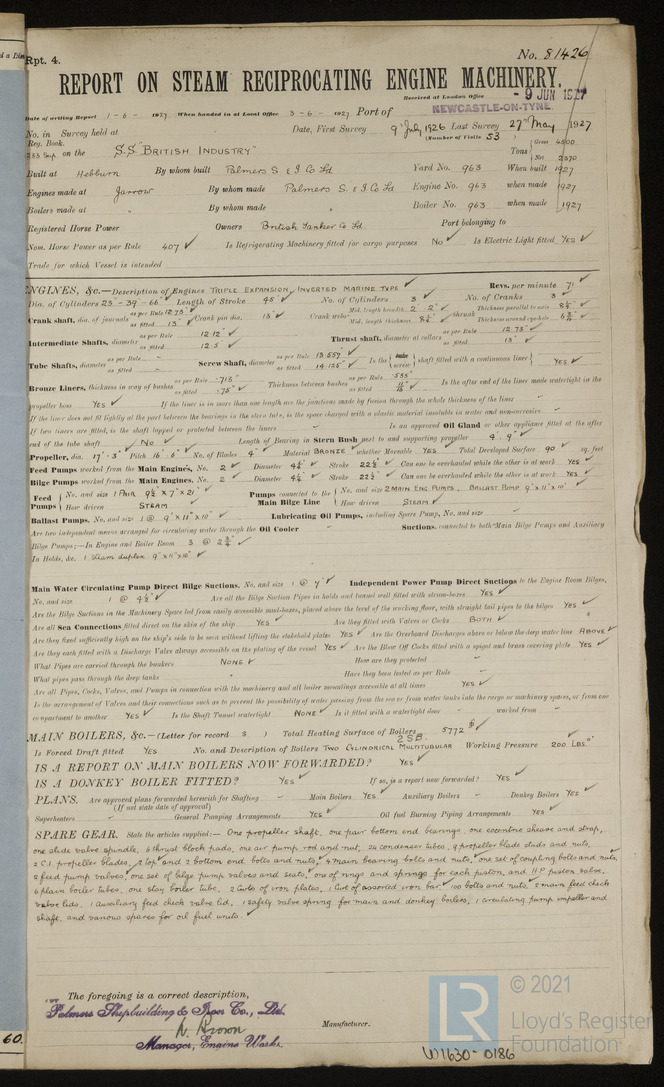 Rpt. 4.
No. 81426
REPORT ON STEAM RECIPROCATING ENGINE MACHINERY.
Received at London Office - 9 JUN 1927
Date of writing Report 1 - 6 - 1927 When handed in at Local Office 3 - 6 - 1927 Port of NEWCASTLE-ON-TYNE.
No. in Survey held at Date, First Survey 9th July 1926 Last Survey 27th May 1927
Reg. Book. (Number of Visits 53)
on the S.S "BRITISH INDUSTRY" Tons Gross 4500 Net 2370
Built at Hebburn By whom built Palmers S. & I Co Ld Yard No. 963 When built 1927
Engines made at Jarrow By whom made Palmers S. & I Co Ld Engine No. 963 when made 1927
Boilers made at " By whom made " Boiler No. 963 when made 1927
Registered Horse Power Owners British Tanker Co Ld. Port belonging to
Nom. Horse Power as per Rule 407 ✓ Is Refrigerating Machinery fitted for cargo purposes No ✓ Is Electric Light fitted Yes ✓
Trade for which Vessel is intended
ENGINES, &c.—Description of Engines TRIPLE EXPANSION, INVERTED MARINE TYPE ✓ Revs. per minute 71
Dia. of Cylinders 23"-39-66" Length of Stroke 45" No. of Cylinders 3 No. of Cranks 3
Crank shaft, dia. of journals as per Rule 12.73 as fitted 13" Crank pin dia. 13" Crank webs Mid. length breadth 2'-2" Mid. length thickness 8¼" shrunk Thickness parallel to axis 8¼" Thickness around eyehole 6¾"
Intermediate Shafts, diameter as per Rule 12.12" as fitted 12.5 Thrust shaft, diameter at collars as per Rule 12.73" as fitted 13"
Tube Shafts, diameter as per Rule - as fitted - Screw Shaft, diameter as per Rule 13.557" as fitted 14.125" Is the screw shaft fitted with a continuous liner Yes ✓
Bronze Liners, thickness in way of bushes as per Rule .713" as fitted .75" Thickness between bushes as per Rule .535" as fitted Is the after end of the liner made watertight in the
propeller boss Yes ✓ If the liner is in more than one length are the junctions made by fusion through the whole thickness of the liner -
If the liner does not fit tightly at the part between the bearings in the stern tube, is the space charged with a plastic material insoluble in water and non-corrosive -
If two liners are fitted, is the shaft lapped or protected between the liners - Is an approved Oil Gland or other appliance fitted at the after
end of the tube shaft No ✓ Length of Bearing in Stern Bush next to and supporting propeller 4'. 9"
Propeller, dia. 17'.3" Pitch 16'.6" No. of Blades 4 Material BRONZE whether Moveable YES ✓ Total Developed Surface 90 sq. feet
Feed Pumps worked from the Main Engines, No. 2 Diameter 4¼" Stroke 22½" Can one be overhauled while the other is at work Yes ✓
Bilge Pumps worked from the Main Engines, No. 2 Diameter 4¼" Stroke 22½" Can one be overhauled while the other is at work Yes ✓
Feed Pumps No. and size 1 PAIR 9½ x 7" x 21" Pumps connected to the Main Bilge Line No. and size 2 MAIN ENG PUMPS. BALLAST PUMP 9" x 11" x 10"
How driven STEAM How driven STEAM ✓
Ballast Pumps, No. and size 1 @ 9" x 11" x 10" Lubricating Oil Pumps, including Spare Pump, No. and size -
Are two independent means arranged for circulating water through the Oil Cooler Suctions, connected to both Main Bilge Pumps and Auxiliary
Bilge Pumps;—In Engine and Boiler Room 3 @ 2¾"
In Holds, &c. 1 Steam duplex 9" x 11" x 10"
Main Water Circulating Pump Direct Bilge Suctions, No. and size 1 @ 9" ✓ Independent Power Pump Direct Suctions to the Engine Room Bilges,
No. and size 1 @ 4½" ✓ Are all the Bilge Suction Pipes in holds and tunnel well fitted with strum-boxes YES ✓
Are the Bilge Suctions in the Machinery Space led from easily accessible mud-boxes, placed above the level of the working floor, with straight tail pipes to the bilges Yes ✓
Are all Sea Connections fitted direct on the skin of the ship YES ✓ Are they fitted with Valves or Cocks BOTH ✓
Are they fixed sufficiently high on the ship's side to be seen without lifting the stokehold plates YES ✓ Are the Overboard Discharges above or below the deep water line ABOVE ✓
Are they each fitted with a Discharge Valve always accessible on the plating of the vessel YES ✓ Are the Blow Off Cocks fitted with a spigot and brass covering plate YES ✓
What Pipes are carried through the bunkers NONE ✓ How are they protected -
What pipes pass through the deep tanks " Have they been tested as per Rule -
Are all Pipes, Cocks, Valves, and Pumps in connection with the machinery and all boiler mountings accessible at all times YES ✓
Is the arrangement of Valves and their connections such as to prevent the possibility of water passing from the sea or from water tanks into the cargo or machinery spaces, or from one
compartment to another YES ✓ Is the Shaft Tunnel watertight NONE ✓ Is it fitted with a watertight door - worked from -
MAIN BOILERS, &c.—(Letter for record S) Total Heating Surface of Boilers 5772
2 S.B.
Is Forced Draft fitted YES No. and Description of Boilers TWO CYLINDRICAL MULTITUBULAR Working Pressure 200 LBS.
IS A REPORT ON MAIN BOILERS NOW FORWARDED? YES ✓
IS A DONKEY BOILER FITTED? YES ✓ If so, is a report now forwarded? YES ✓
PLANS. Are approved plans forwarded herewith for Shafting - Main Boilers YES ✓ Auxiliary Boilers - Donkey Boilers YES ✓
(If not state date of approval)
Superheaters - General Pumping Arrangements YES ✓ Oil fuel Burning Piping Arrangements YES ✓
SPARE GEAR. State the articles supplied:— One propeller shaft, one pair bottom end bearings, one eccentric sheave and strap,
one slide valve spindle, 6 thrust block pads, one air pump rod and nut, 24 condenser tubes, 9 propeller blade studs and nuts,
2 C.I. propeller blades, 2 top and 2 bottom end bolts and nuts, 4 main bearing bolts and nuts, one set of coupling bolts and nuts,
2 feed pump valves, one set of bilge pump valves and seats, one of rings and springs for each piston, and H P piston valve,
6 plain boiler tubes, one stay boiler tube, 2 cwts of iron plates, 1 cwt of assorted iron bar, 100 bolts and nuts, 2 main feed check
valve lids, 1 auxiliary feed check valve lid, 1 safety valve spring for main and donkey boilers, 1 circulating pump impeller and
shaft, and various spares for oil fuel units. ✓
The foregoing is a correct description,
Palmers Shipbuilding & Iron Co., Ltd.
R. Brown Manufacturer.
Manager, Engine Works.
60.
W1630-0186
LR © 2021
Lloyd's Register
Foundation